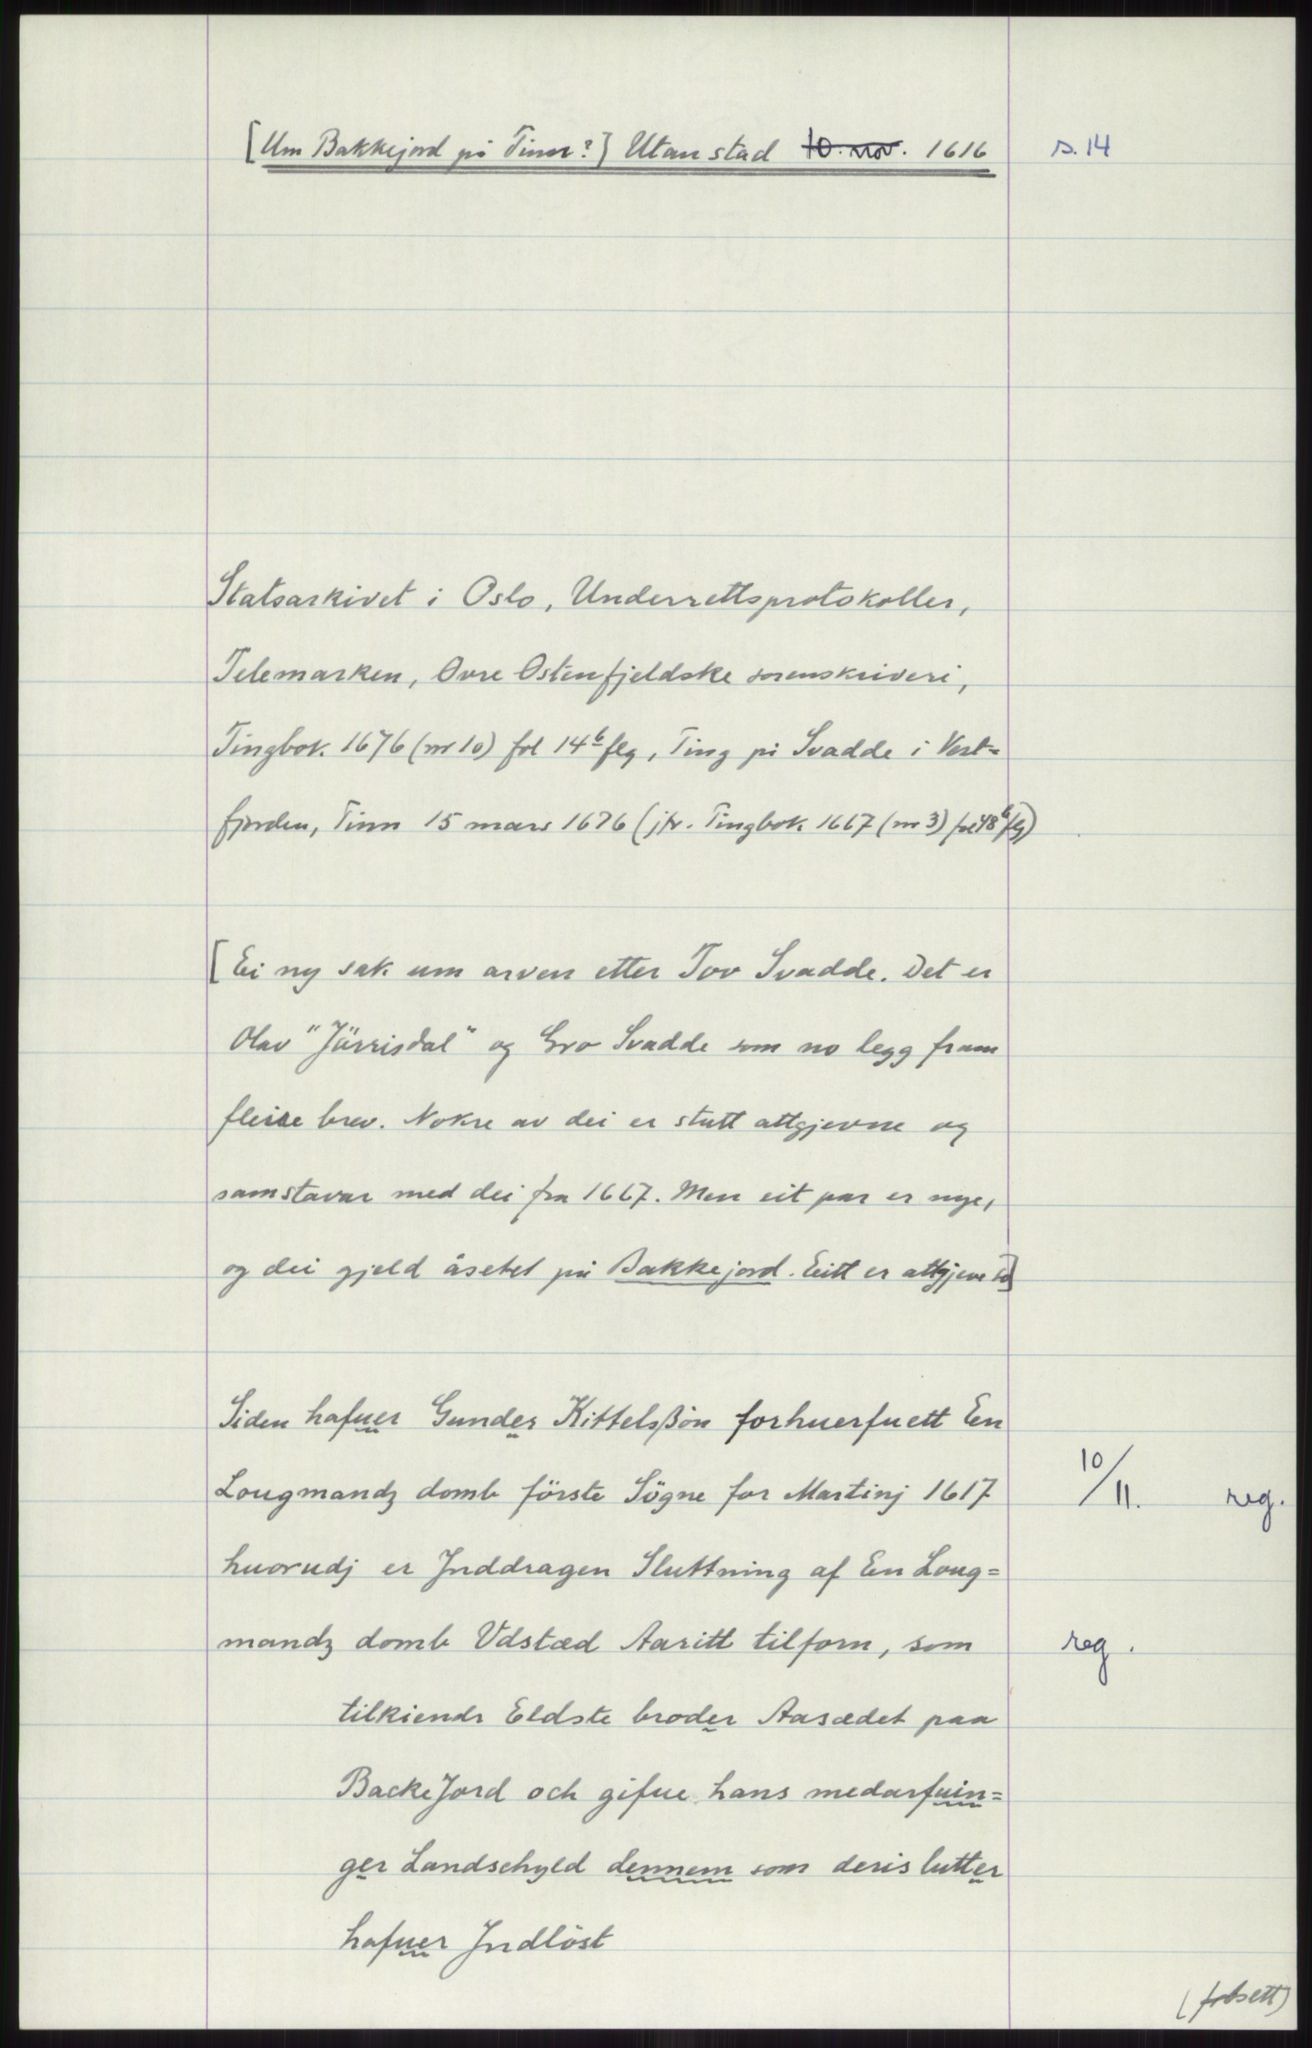 [Um Bakkejord på Tinn?] Utan stad 10. nov. 1616 s. 14
Statsarkivet i Oslo, Underrettsprotokoller,
Telemarken, Øvre Østenfjeldske sorenskriveri,
Tingbok 1676 (nr 10) fol 14b flg, Ting på Svadde i Vest-
fjorden, Tinn 15 mars 1676 (jfr. Tingbok 1667 (nr 3) fol 48b flg)
[Ei ny sak um arven etter Tov Svadde. Det er
Olav "Jürrisdal" og Gro Svadde som no legg fram
fleire brev. Nokre av dei er stutt attgjevne og
samstavar med dei fra 1667. Men eit par er nye,
og dei gjeld åsetet på Bakkejord. Eitt er attgjeve so]
Siden hafuer Gunder Kittelsßön forhuerfuett En
Lougmandz domb förste Sögne for Martinj 1617 10/11. reg.
huorudj er Jnddragen Sluttning af En Loug=
mandz domb Vdstæd Aaritt tilforn, som reg.
tilkiendr Eldste broder Aasædet paa
BackeJord och gifue hans medarfuin=
ger Landschyld dennem som deris lutter
hafuer Jndlöst
(fortsett)